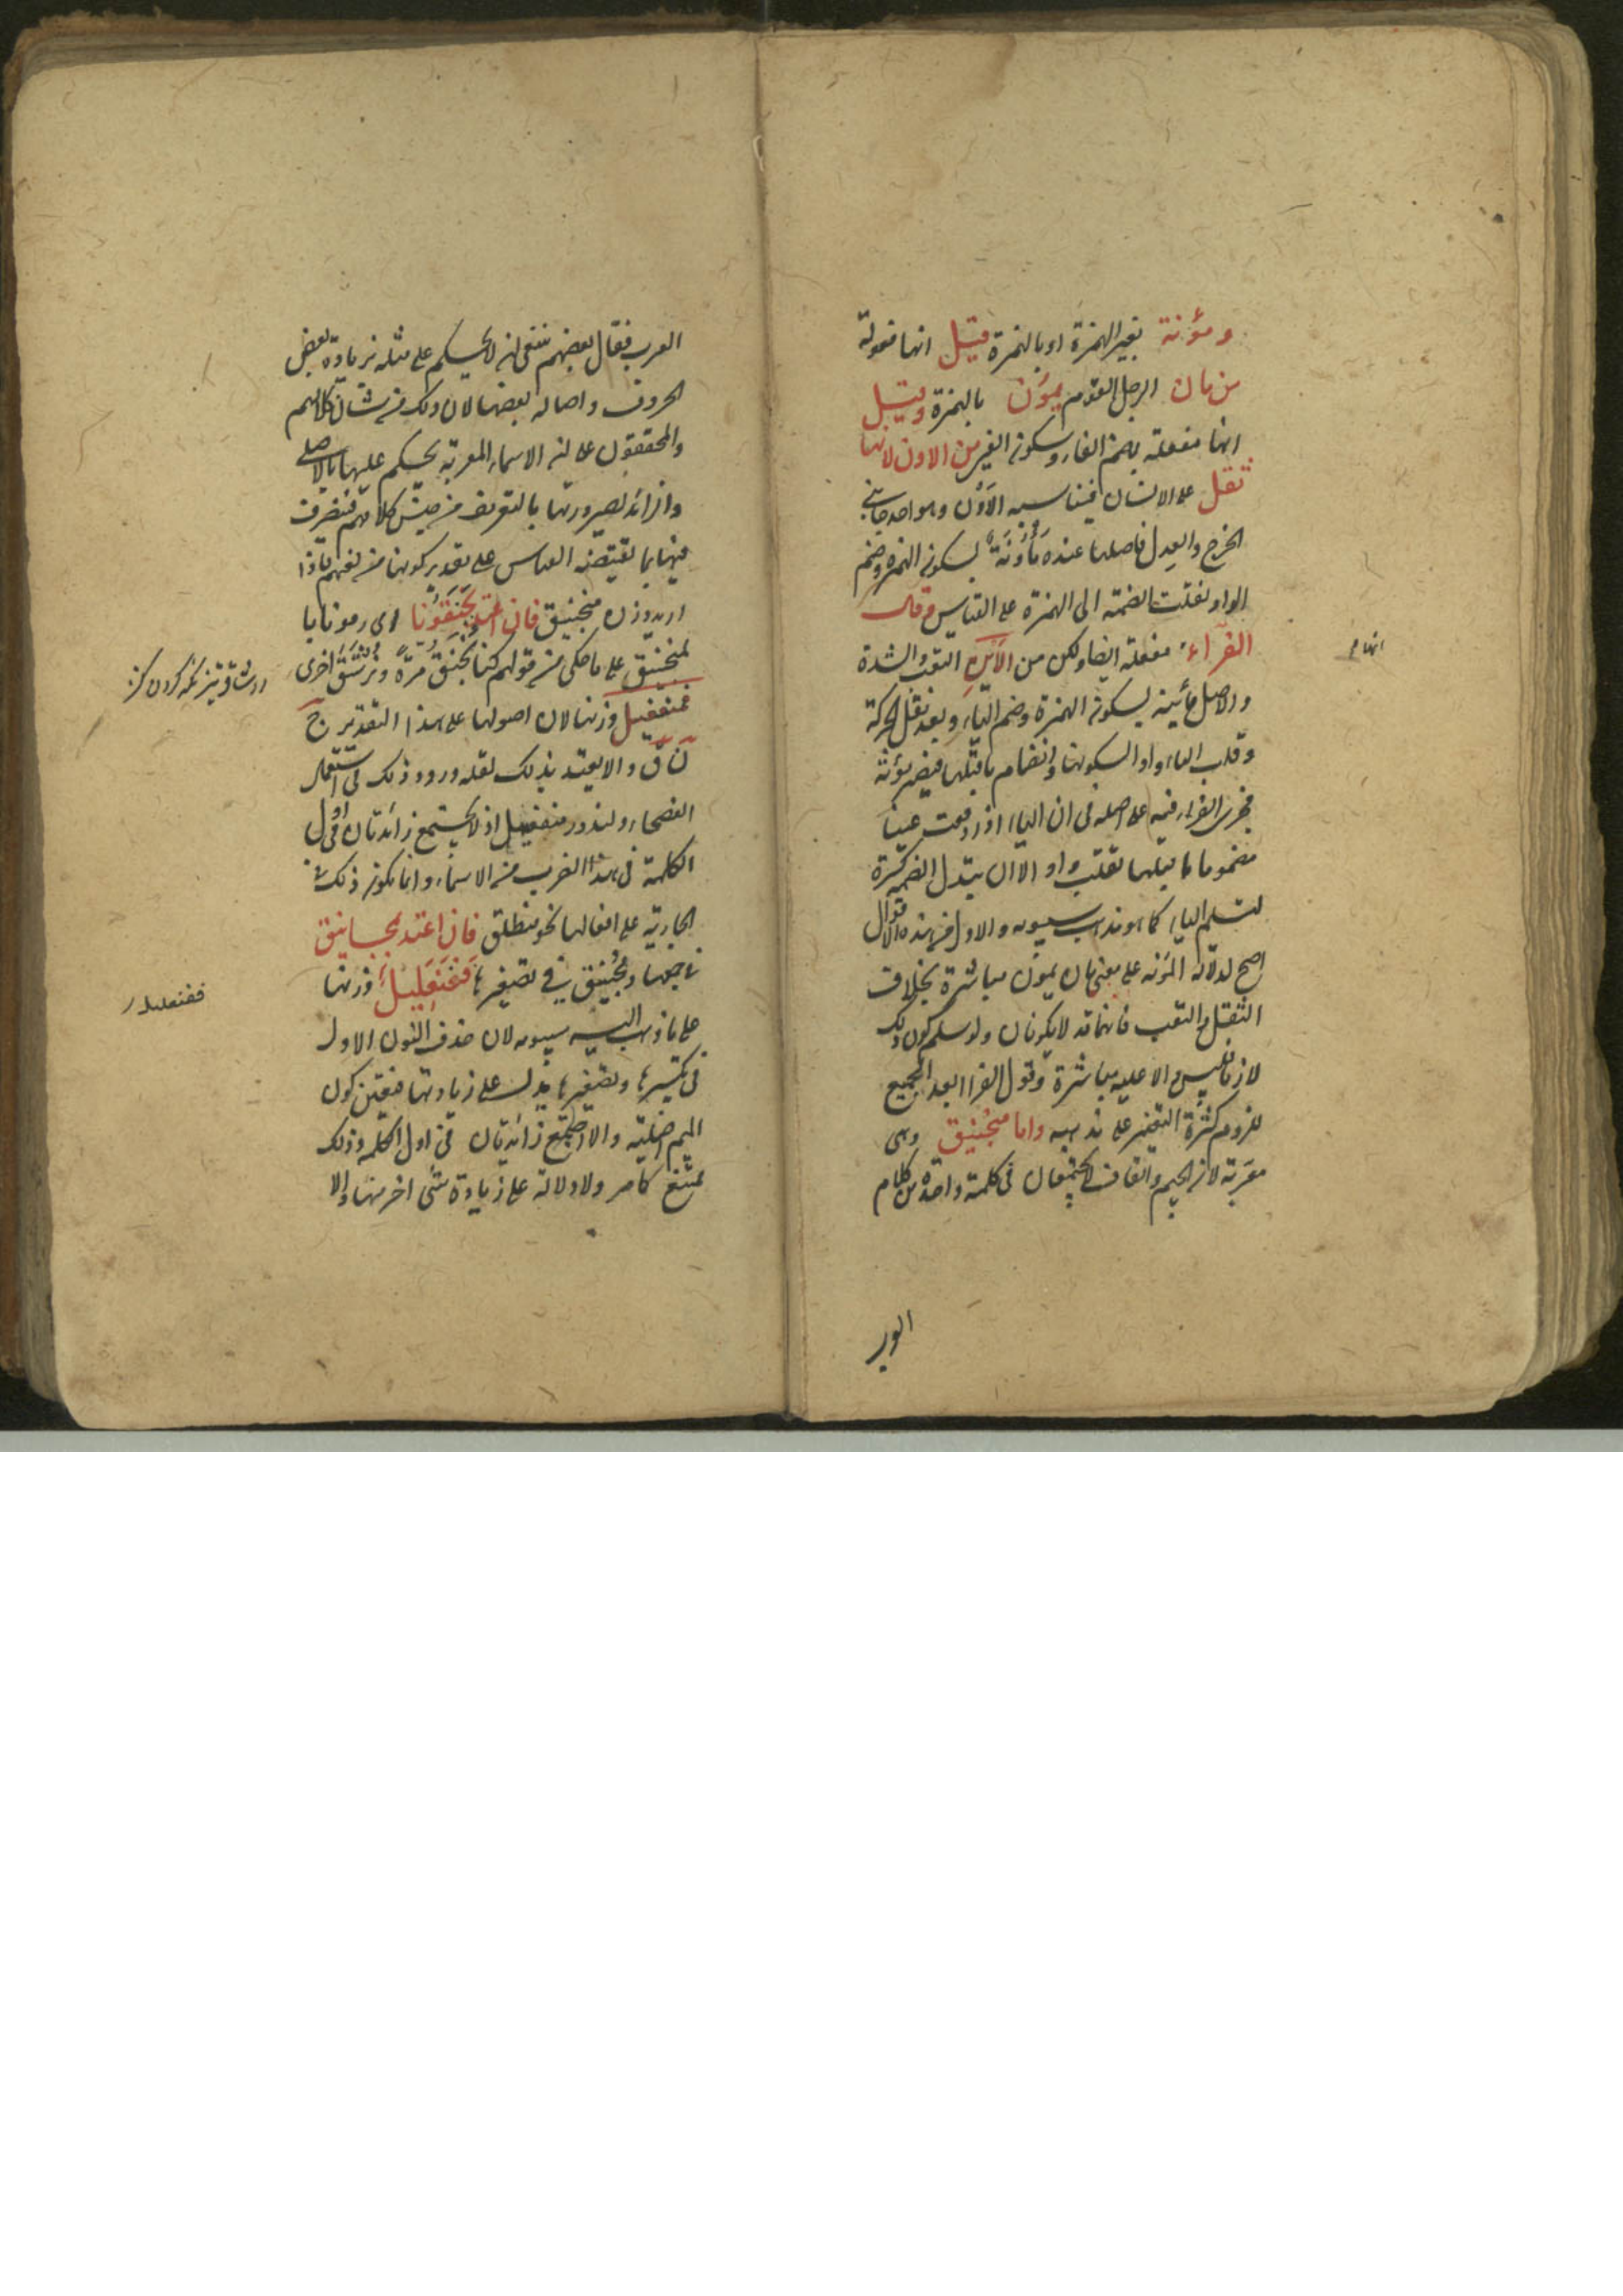 ومؤنة بغير الهمزة او بالهمزة قيل انها فعولة
من مان الرجل القوم يمون بالهمزة وقيل
انها مفعلة بضم الفاء وسكون الغير من الاون لانها
ثقل على الانسان فيناسبه الاَوْن وهو احد جانبي
الخرج والعدل فاصلها عنده مَأْوُنَةٌ بسكون الهمزة وضم
الواو نقلت الضمة الى الهمزة على القياس وقال
الفرّاء مفعلة ايضا ولكن من الاَيْنِ التعب والشدة
والاصل مأينة بسكون الهمزة وضم الياء وبعد نقل الحركة
وقلب الياء واوا لسكونها وانضمام ما قبلها فيصير مؤنة
فجرى الفراء فيه على اصله فى ان الياء اذا وقعت عينا
مضموما ما قبلها تقلب واوا لا ان يبدل الضمة كسرة
لتسلم الياء كما هو مذهب سيبويه والاول من هذه الاقوال
اصح لدلالة المؤنة على معنى مان يمون مباشرة بخلاف
الثقل والتعب فانهما قد لا يكونان ولو سلم كون ذلك
لازما فليس دالا عليه مباشرة وقول الفرا ابعد الجميع
للزوم كثرة التغيير على مذهبه واما منجنيق وهى
معربة لان الجيم والقاف لا يجتمعان فى كلمة واحدة من كلام
انها م
العرب فقال بعضهم ينبغى ان لا يحكم على مثله بزيادة بعض
الحروف واصالة بعضها لان ذلك من شان كلامهم
والمحققون على ان الاسماء المعربة يحكم عليها بالاصلى
والزائد لصيرورتها بالتعريب من جنس كلامهم فتصرف
فيها بما يقتضيه القياس على تقدير كونها من لغتهم فاذا
اريد وزن منجنيق فان اعتد بجنقونا اى رمونا با
لمنجنيق على ما حكى من قولهم كنا نجنق مرة ونرشق اخرى
فمنفعيل وزنها لان اصولها على هذا التقدير ج
ن ق والا يعتد بذلك لقلة ورود ذلك فى استعمال
الفصحاء ولندور منفعيل اذ لا يجتمع زائدتان فى اول
الكلمة فى هذا الضرب من الاسماء وانما يكون ذلك فى
الجارية على افعالها نحو منطلق فان اعتد بمجانيق
فى جمعها ومجينيق فى تصغيرها فَفَنْعَلِيلٌ وزنها
على ما ذهب اليه سيبويه لان حذف النون الاولى
فى تكسيرها وتصغيرها يدل على زيادتها فتعين كون
الميم اصلية والا اجتمع زائدتان فى اول الكلمة وذلك
ممتنع كما مر ولا دلالة على زيادة شئ اخر منها والا
ففنعليل